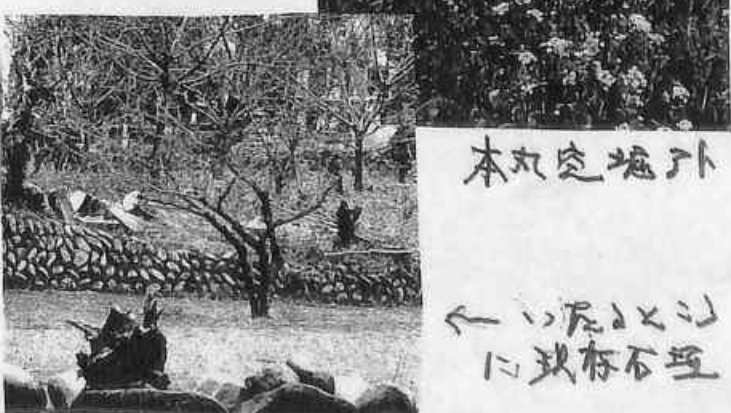 本丸空堀跡
← いたるところ
に現存石垣